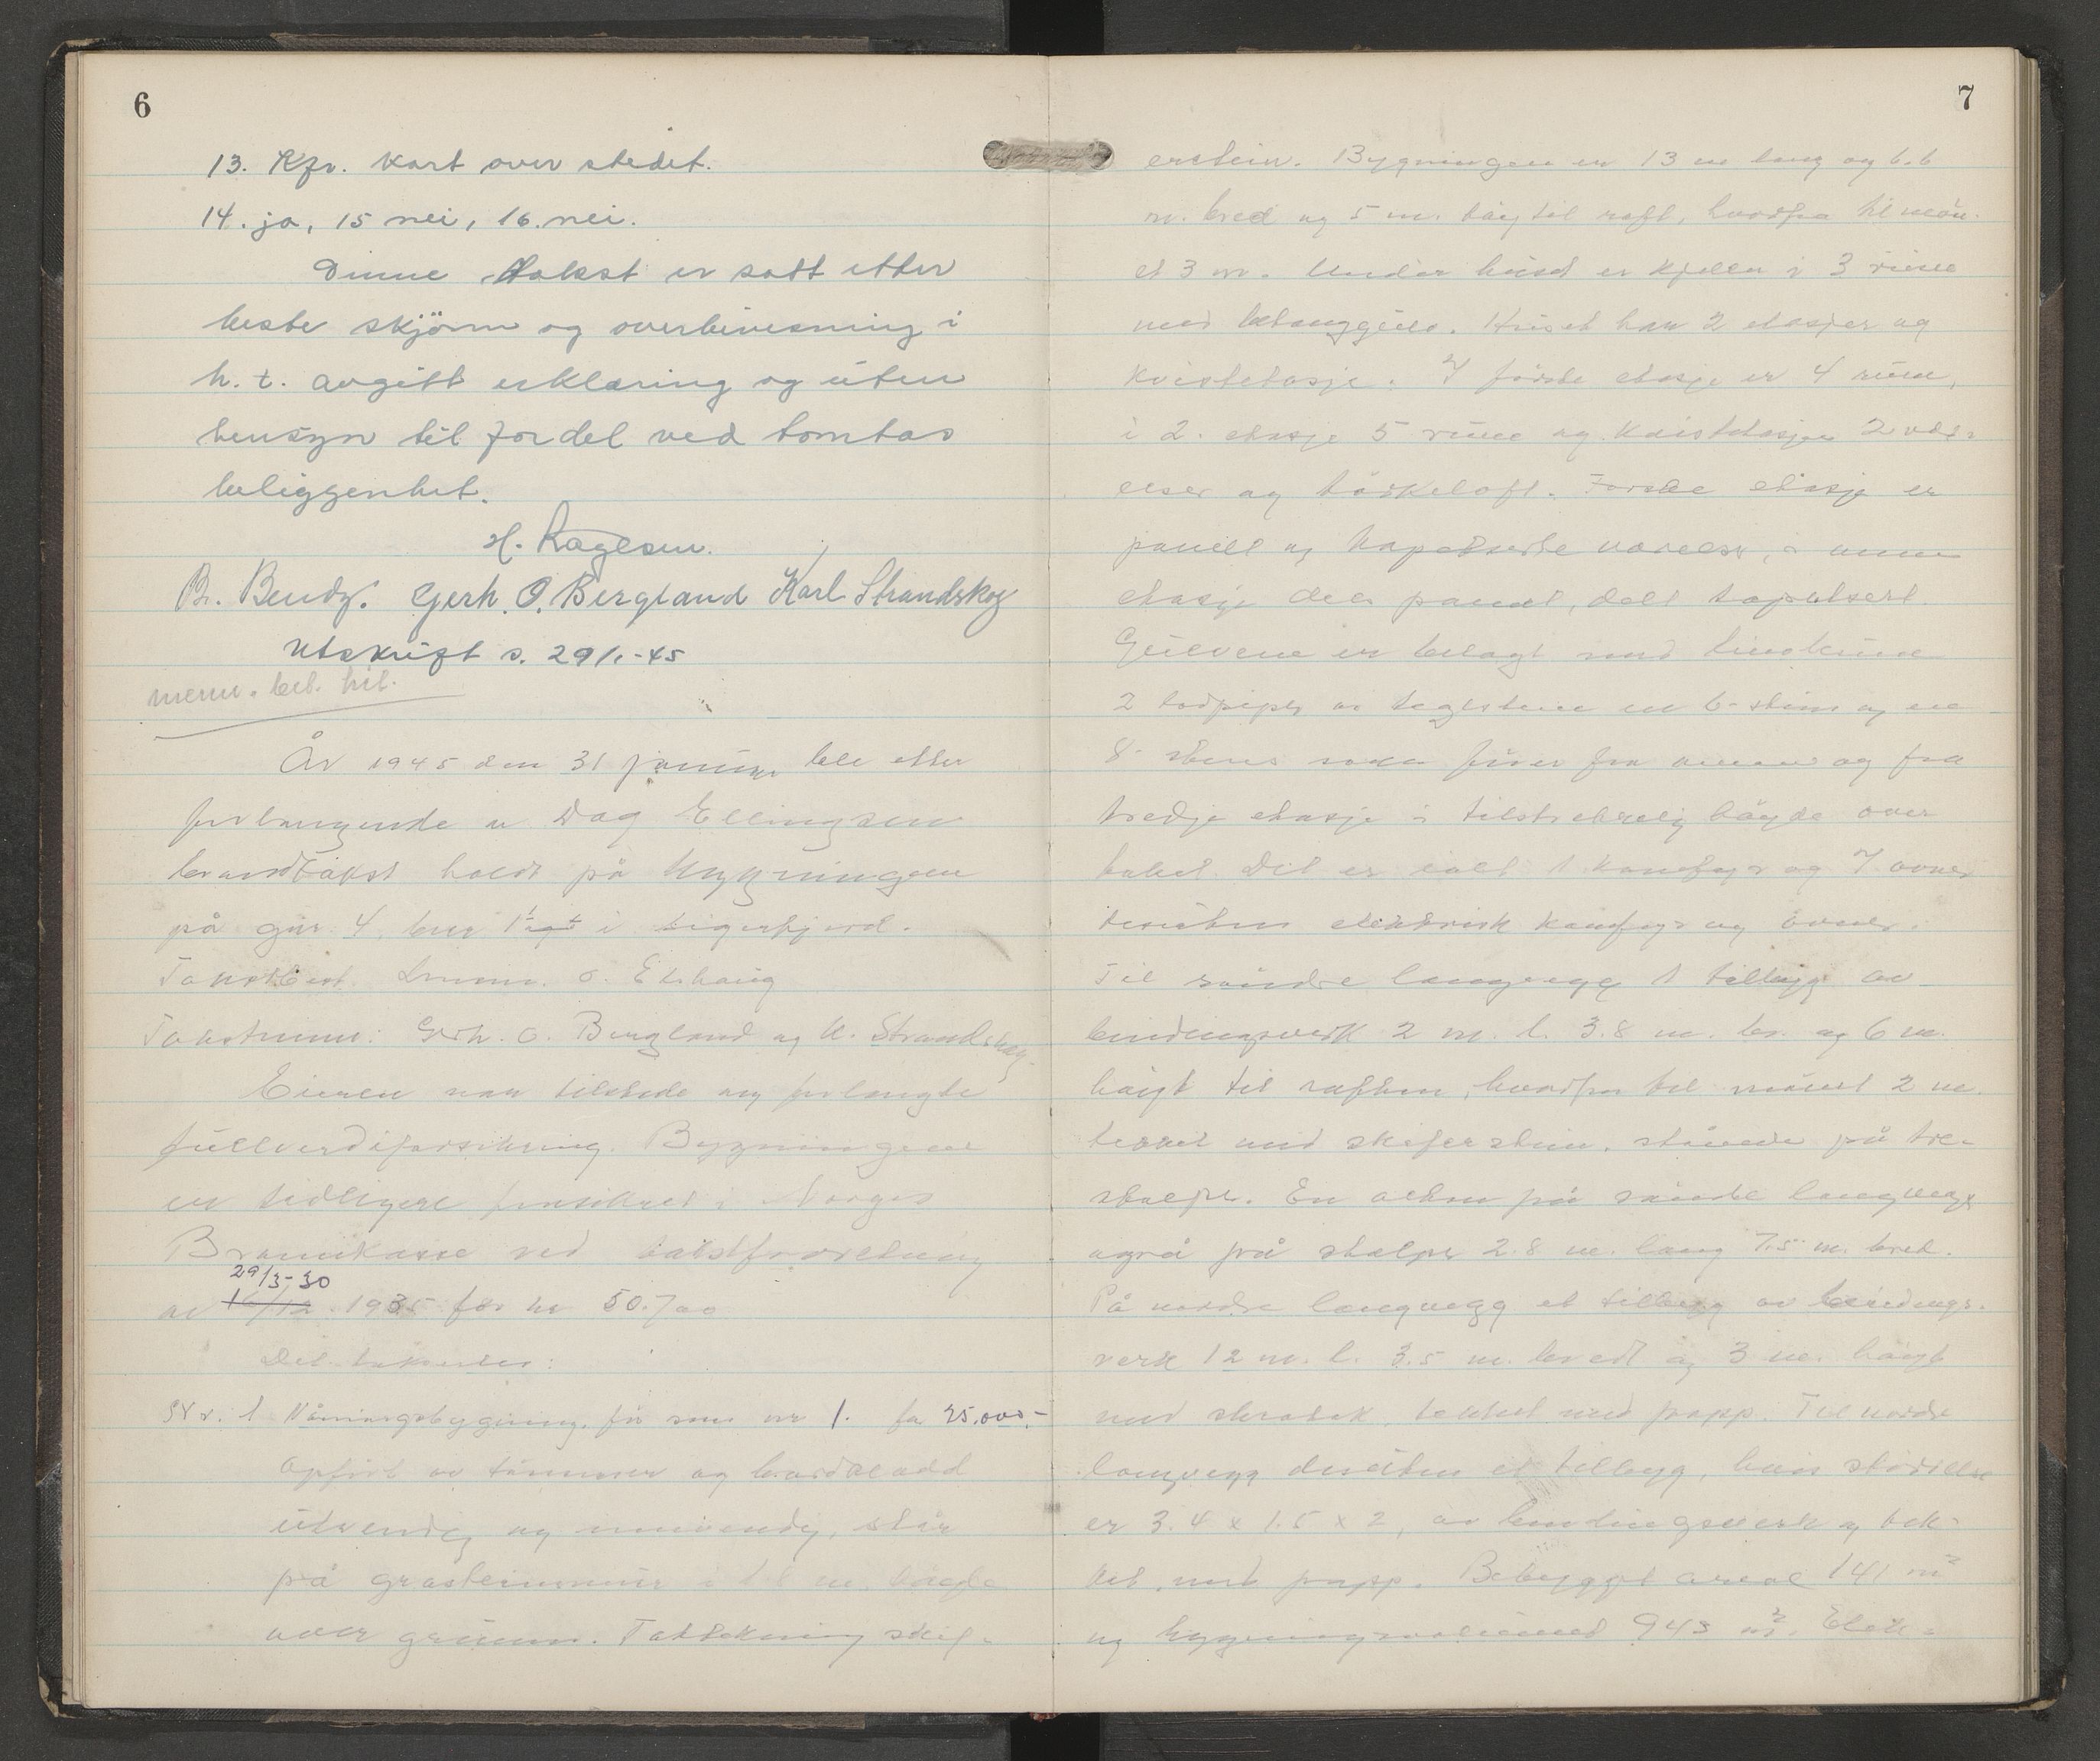 6
13. Kfr. kart over stedet.
14. ja, 15 nei, 16. nei.
Denne takst er satt etter
beste skjönn og overbevisning i
h. t. avgitt erklæring og uten
hensyn til fordel ved tomtas
beliggenhet.
H. Kagesen.
Br. Bendz. Gerh. O. Bergland Karl Strandskog
Utskrift s. 29/1-45
År 1945 den 31 januar ble etter
forlangende av Dag Ellingsen
branntakst holdt på bygningene
på gnr 4, bnr 1 i Sigerfjord.
Takstbest.
Takstmenn: Gerh. O. Bergland og K. Strandskog.
Eieren var tilstede og forlangte
fullverdiforsikring. Bygningene
er tidligere forsikret i Norges
Brannkasse ved takstforretning
29/3-30
av 16/12 1935 for kr 50.700
Det takseres:
Nr. 1 Våningsbygning, för som nr 1. for 25.000,-
Opfört av tömmer og bordkledd
utvendig og innvendig, står
på gråsteinsmur i 1 m. høyde
over grunnen. Taktekning skif-
7
erstein. Bygningen er 13 m lang og 6.6
m. bred og 5 m. höy til raft, hvorfra til mön-
et 3 m. Under huset er kjeller i 3 rum
med betonggulv. Huset har 2 etasjer og
kvistetasje. I förste etasje er 4 rum,
i 2. etasje 5 rum og kvistetasjen 2 vær-
elser og törkeloft. Förste etasje er
panelt og tapetserte værelser, i annen
etasje dels panelt, dels tapetsert.
Gulvene er belagt med linoleum
2 bodpiper av teglstein en 6-steins og en
8-steins som förer fra annen og fra
tredje etasje i tilstrekkelig höyde over
taket. Det er ialt 1 komfyr og 7 ovner
desuten elektrisk komfyr og ovner.
Til söndre langvegg 1 tilbygg av
bindingsverk 2 m. l. 3.8 m. br. og 6 m.
höigt til raften, hvorfra til mönet 2 m.
tekket med skiferstein, stående på tre-
stolper. En altan på söndre langvegg
også på stolper 2.8 m. lang 7.5 m. bred.
På nordre langvegg et tilbygg av bindings-
verk 12 m. l. 3.5 m. bredt og 3 m. höigt
med skråtak, tekket med papp. Til nordre
langvegg desuten et tilbygg, hvis störrelse
er 3.4 x 1.5 x 2, av bindingsverk og tek-
ket med papp. Bebygget areal 141 m²
og bygningsvolumet 943 m³. Elek-